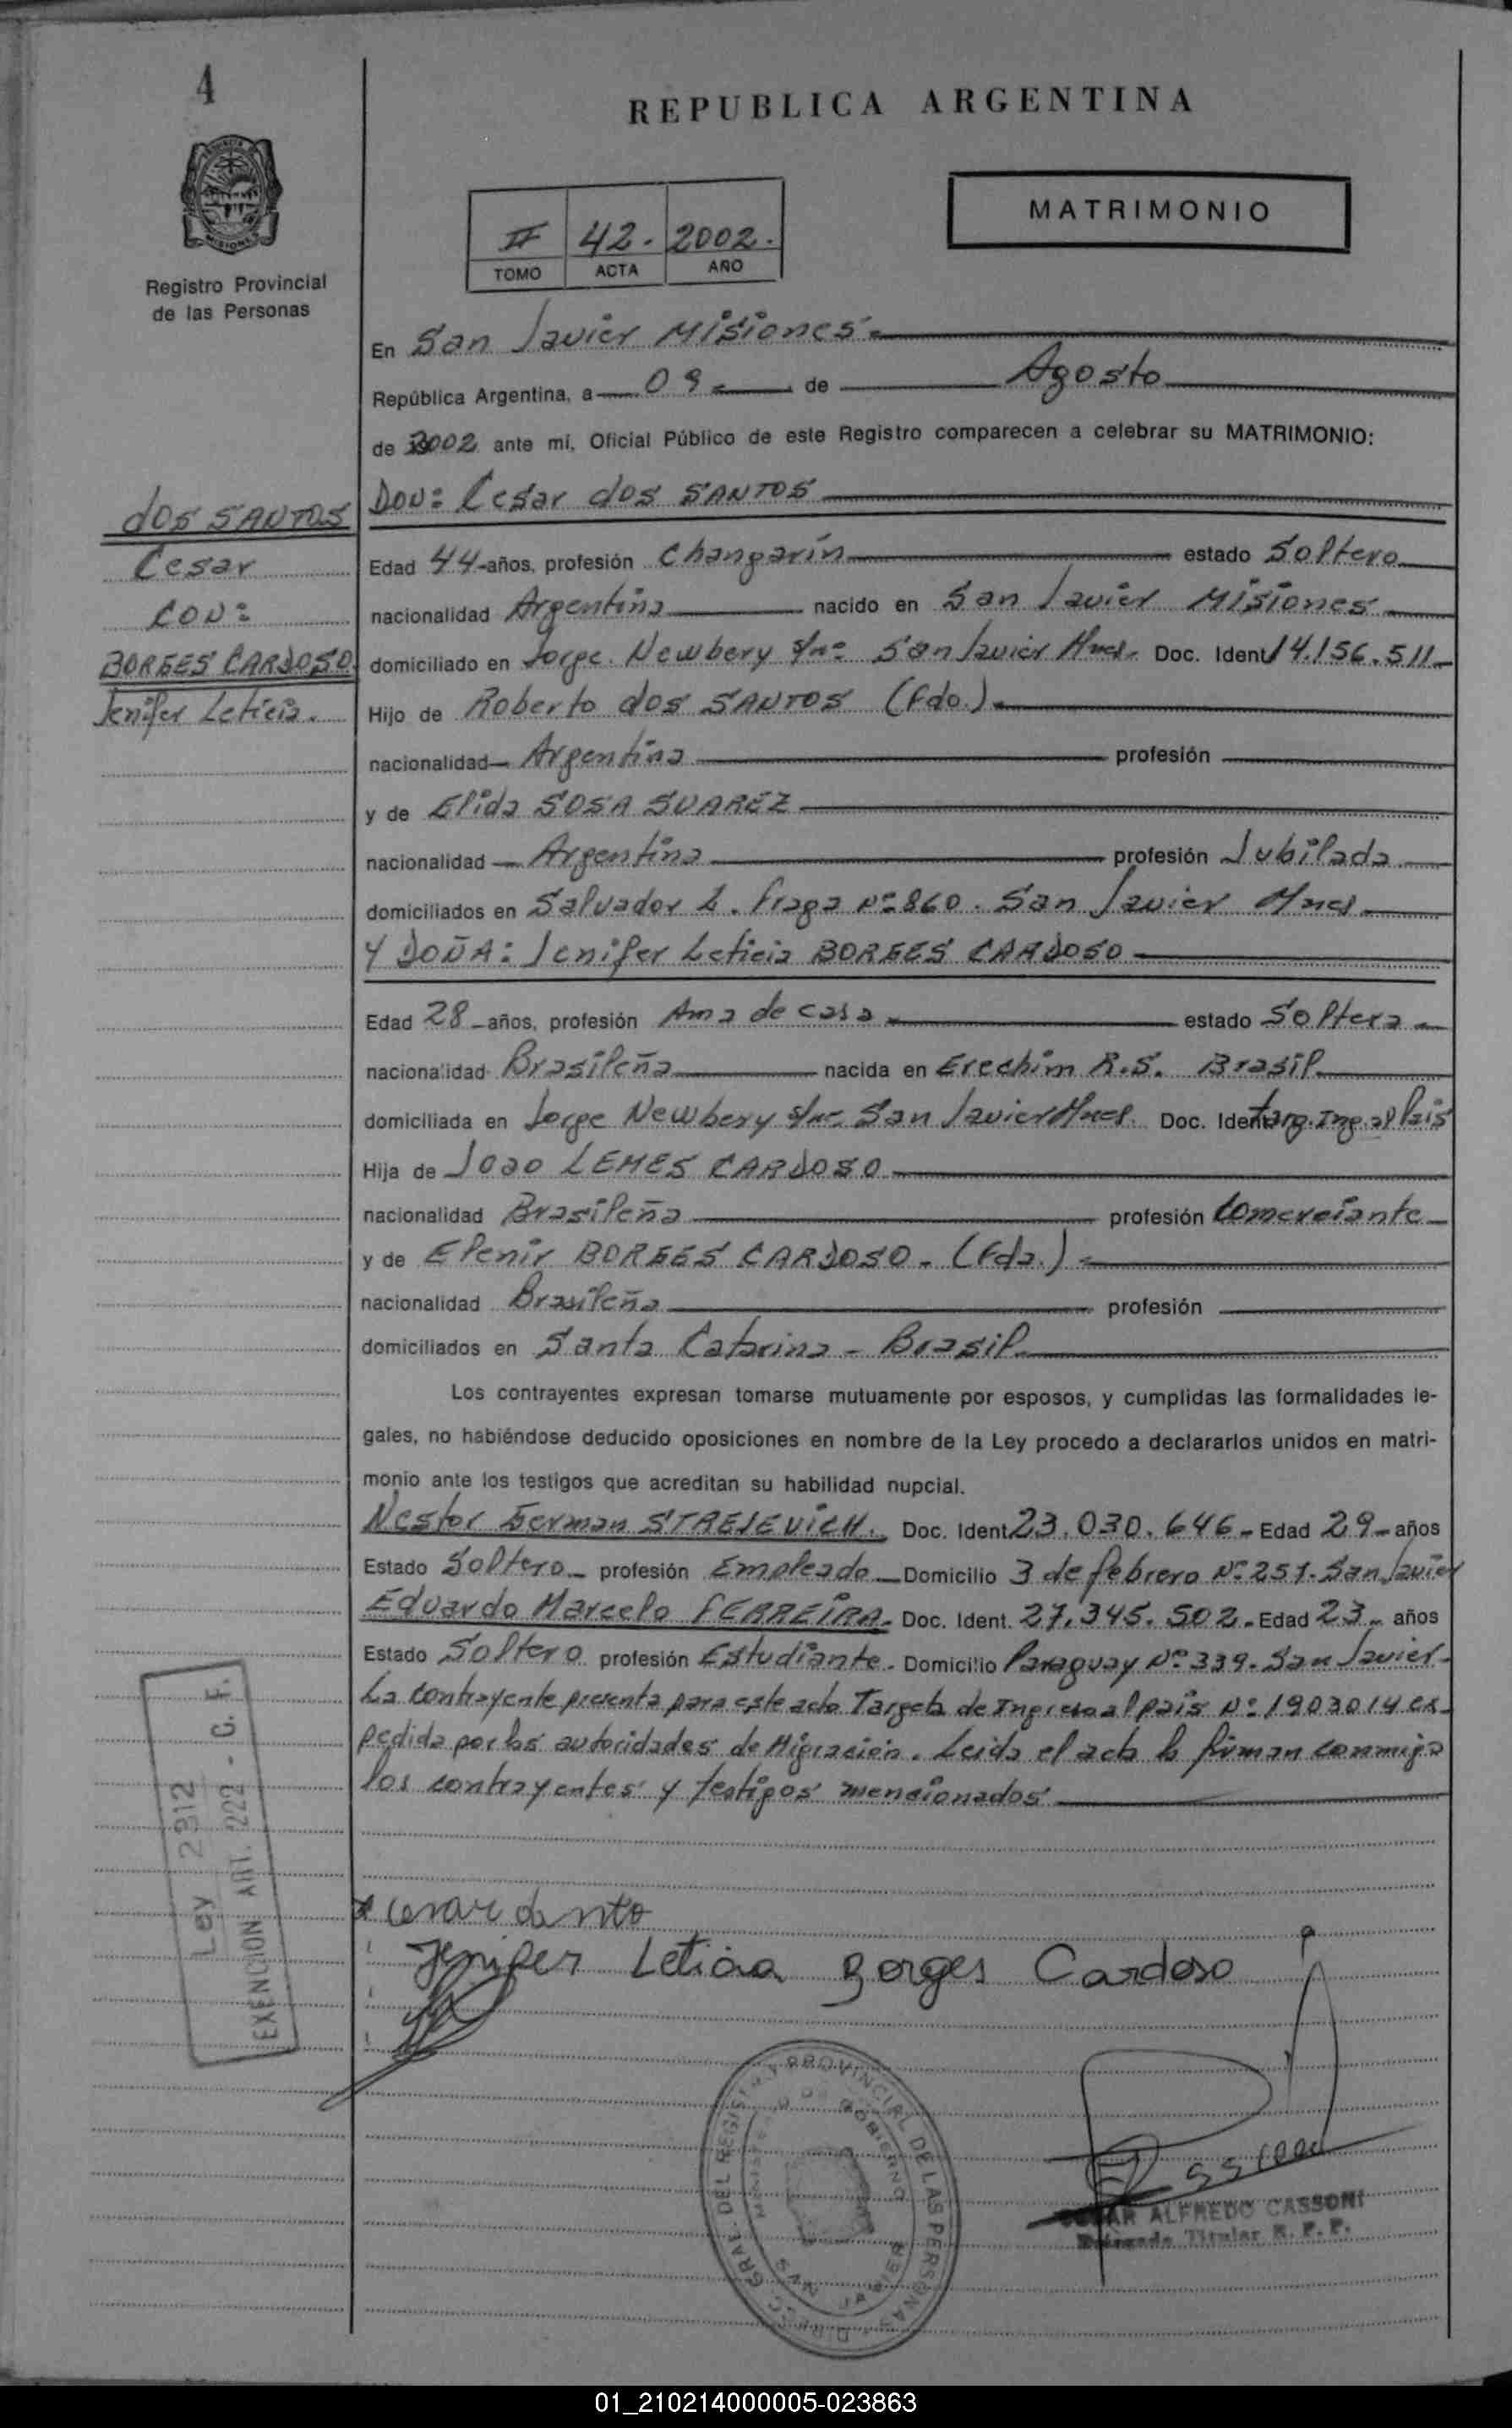 4
REPUBLICA ARGENTINA
MATRIMONIO
II 42. 2002.
TOMO ACTA AÑO
MISIONES
Registro Provincial
de las Personas
En San Javier Misiones
República Argentina, a 09 de Agosto
de 2002 ante mi, Oficial Público de este Registro comparecen a celebrar su MATRIMONIO:
DON: Cesar dos SANTOS
dos SANTOS
Cesar
CON:
BORGES CARDOSO
Jenifer Leticia.
Edad 44-años, profesión Changarín estado Soltero
nacionalidad Argentina nacido en San Javier Misiones
domiciliado en Jorge Newbery s/nº San Javier Mnes. Doc. Ident 14.156.511
Hijo de Roberto dos SANTOS (Fdo.)
nacionalidad Argentina profesión
y de Elida SOSA SUAREZ
nacionalidad Argentina profesión Jubilada
domiciliados en Salvador L. Fraga Nº 860. San Javier Mnes
Y DOÑA: Jenifer Leticia BORGES CARDOSO
Edad 28 años, profesión Ama de casa estado Soltera
nacionalidad Brasileña nacida en Erechim R.S. Brasil
domiciliada en Jorge Newbery s/nº San Javier Mnes. Doc. Ident Targ. Ing. al Pais
Hija de Joao LEMES CARDOSO
nacionalidad Brasileña profesión Comerciante
y de Elenir BORGES CARDOSO. (Fda.)
nacionalidad Brasileña profesión
domiciliados en Santa Catarina - Brasil
Los contrayentes expresan tomarse mutuamente por esposos, y cumplidas las formalidades le-
gales, no habiéndose deducido oposiciones en nombre de la Ley procedo a declararlos unidos en matri-
monio ante los testigos que acreditan su habilidad nupcial.
Nestor German Doc. Ident 23.030.646 Edad 29 años
Estado Soltero profesión Empleado Domicilio 3 de febrero Nº San Javier
Eduardo Marcelo FERREIRA. Doc. Ident. 27.345.502 Edad 23 años
Estado Soltero profesión Estudiante. Domicilio Paraguay Nº 339. San Javier
La contrayente presenta para este acto Targeta de Ingreso al pais Nº 1903014 ex-
pedida por las autoridades de Migración. Leida el acta la firman conmigo
los contrayentes y testigos mencionados
Ley 2912
EXENCION ART. 222 - C. F.
Jenifer Leticia Borges Cardoso
DIRECC. GRAL. DEL REGISTRO PROVINCIAL DE LAS PERSONAS
GOBIERNO
SAN JAVIER
ALFREDO CASSONI
Titular R. P. P.
01_210214000005-023863